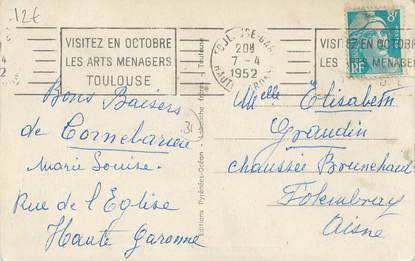 12€
VISITEZ EN OCTOBRE
LES ARTS MENAGERS
TOULOUSE
TOULOUSE-GARE
20H
7-4
1952
HAUTE GARONNE
VISITEZ EN OCTOBRE
LES ARTS MENAGER
8F
RF
Bons Baisers
de Cornebarieu
31
Marie Louise.
Rue de l'Eglise
Haute Garonne
Editions Pyrénées-Océan - Labouche frères - Toulouse
Melle Elisabeth
Graudin
chaussée Brunehaud
Folembray
Aisne